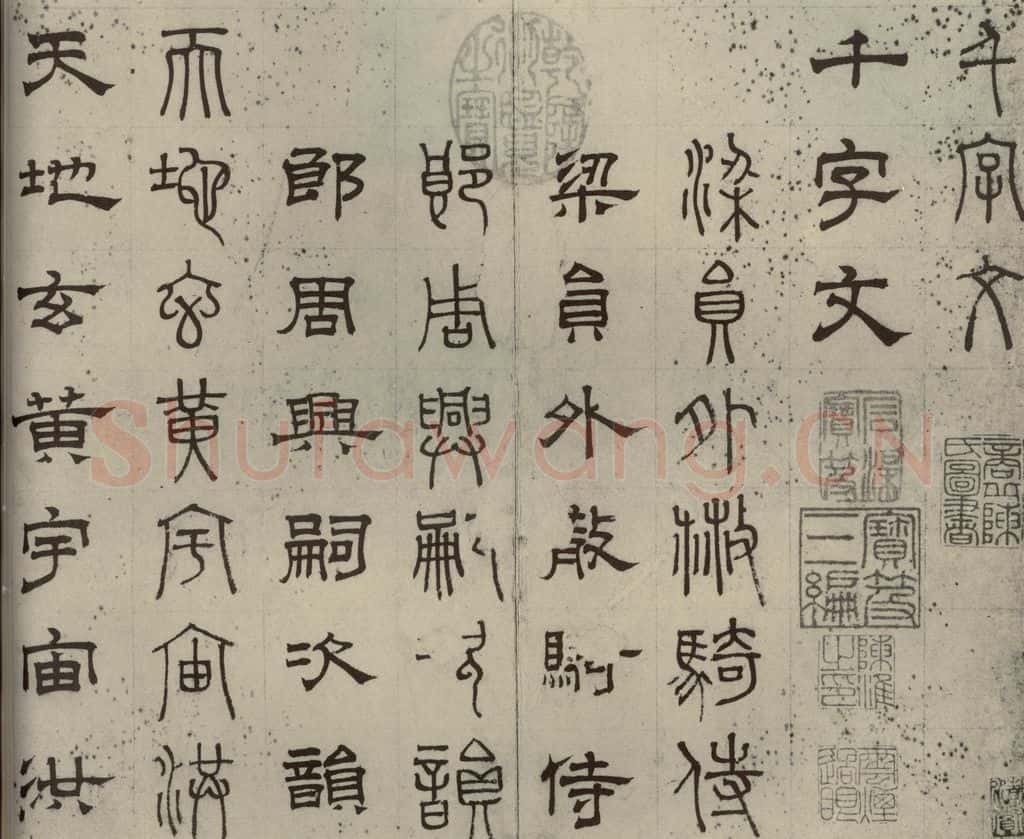 千字文
千字文
梁員外散騎侍
梁員外散騎侍
郎周興嗣次韻
郎周興嗣次韻
天地玄黃宇宙洪
天地玄黃宇宙洪
寶笈三編
陳淮之印
Shufawang.CN